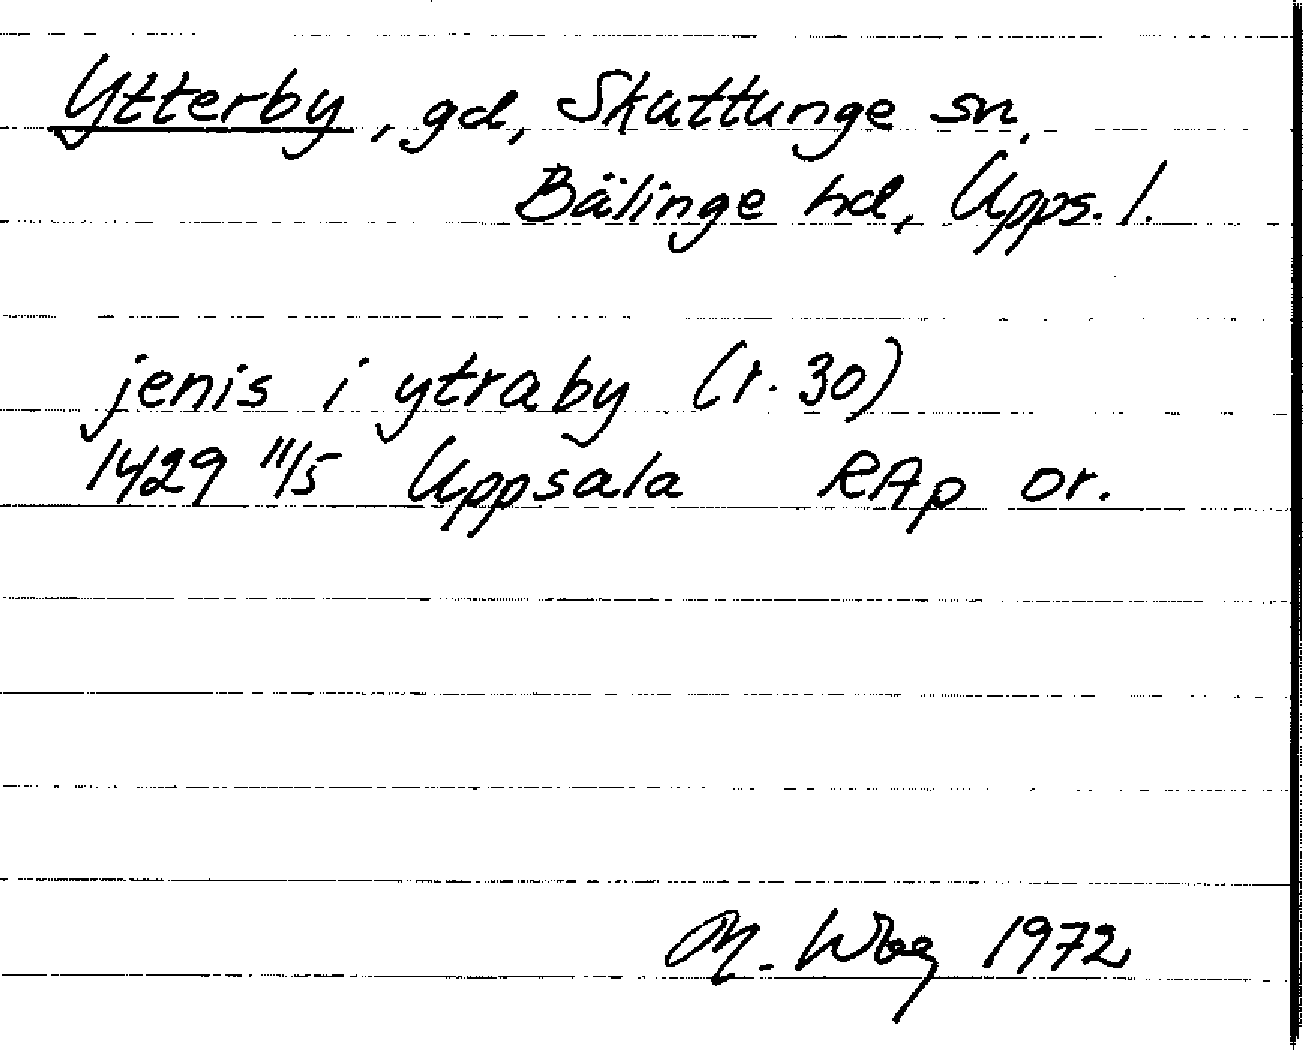 Ytterby, gd, Skuttunge sn,
Bälinge hd, Upps. l.
jenis i ytraby (r. 30)
1429 11/5 Uppsala RAp or.
M. 1972